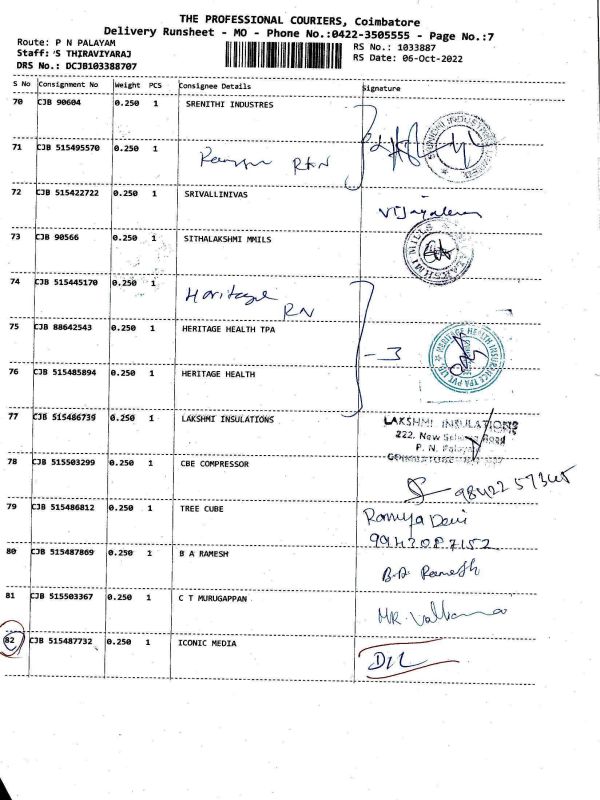 THE PROFESSIONAL COURIERS, Coimbatore
Delivery Runsheet - MO - Phone No.:0422-3505555 - Page No.:7
Route: P N PALAYAM
Staff: 'S THIRAVIYARAJ
DRS No.: DCJB103388707
RS No.: 1033887
RS Date: 06-Oct-2022
S No Consignment No Weight PCS Consignee Details Signature
70 CJB 90604 0.250 1 SRENITHI INDUSTRES
71 CJB 515495570 0.250 1
72 CJB 515422722 0.250 1 SRIVALLINIVAS
73 CJB 90566 0.250 1 SITHALAKSHMI MMILS
74 CJB 515445170 0.250 1 Heritage RN
75 CJB 88642543 0.250 1 HERITAGE HEALTH TPA
- 3
HERITAGE HEALTH INSURANCE TPA PVT. LTD.
76 CJB 515485894 0.250 1 HERITAGE HEALTH
77 CJB 515486739 0.250 1 LAKSHMI INSULATIONS
LAKSHMI INSULATIONS
222, New Scheme Road
P. N. Palayam
78 CJB 515503299 0.250 1 CBE COMPRESSOR
79 CJB 515486812 0.250 1 TREE CUBE Ramya Devi
80 CJB 515487869 0.250 1 B A RAMESH B.A. Ramesh
81 CJB 515503367 0.250 1 C T MURUGAPPAN
82 CJB 515487732 0.250 1 ICONIC MEDIA